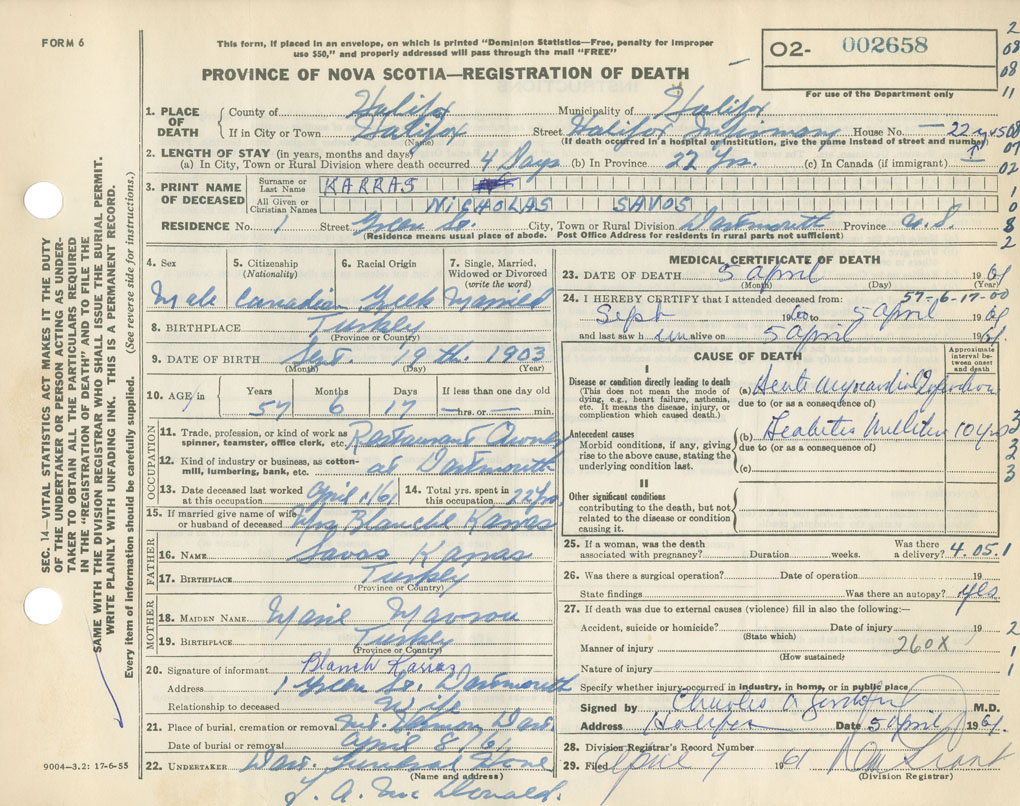 FORM 6
This form, if placed in an envelope, on which is printed "Dominion Statistics—Free, penalty for improper
use $50," and properly addressed will pass through the mail "FREE"
PROVINCE OF NOVA SCOTIA—REGISTRATION OF DEATH
O2- 002658
For use of the Department only
SEC. 14—VITAL STATISTICS ACT MAKES IT THE DUTY
OF THE UNDERTAKER OR PERSON ACTING AS UNDER-
TAKER TO OBTAIN ALL THE PARTICULARS REQUIRED
IN THE "REGISTRATION OF DEATH" AND TO FILE THE
SAME WITH THE DIVISION REGISTRAR WHO SHALL ISSUE THE BURIAL PERMIT.
WRITE PLAINLY WITH UNFADING INK. THIS IS A PERMANENT RECORD.
Every item of information should be carefully supplied. (See reverse side for instructions.)
1. PLACE OF DEATH County of Halifax Municipality of Halifax
If in City or Town Halifax Street Halifax Infirmary House No. — 22 yrs
(Name) (If death occurred in a hospital or institution, give the name instead of street and number)
2. LENGTH OF STAY (in years, months and days)
(a) In City, Town or Rural Division where death occurred 4 Days (b) In Province 22 Yrs. (c) In Canada (if immigrant)
3. PRINT NAME OF DECEASED Surname or Last Name KARRAS
All Given or Christian Names NICHOLAS SAVOS
RESIDENCE No. 1 Street Green St. City, Town or Rural Division Dartmouth Province N.S.
(Residence means usual place of abode. Post Office Address for residents in rural parts not sufficient)
4. Sex 5. Citizenship (Nationality) 6. Racial Origin 7. Single, Married, Widowed or Divorced (write the word)
Male Canadian Greek Married
8. BIRTHPLACE Turkey
(Province or Country)
9. DATE OF BIRTH Sept. 19th. 1903
(Month) (Day) (Year)
10. AGE Years Months Days If less than one day old
57 6 17 — hrs. or — min.
OCCUPATION
11. Trade, profession, or kind of work as spinner, teamster, office clerk, etc. Restaurant Owner
12. Kind of industry or business, as cotton-mill, lumbering, bank, etc. at Dartmouth
13. Date deceased last worked at this occupation April 1/61 14. Total yrs. spent in this occupation 22 yrs.
15. If married give name of wife or husband of deceased Mrs Blanche Karras
FATHER
16. NAME Savas Karras
17. BIRTHPLACE Turkey
(Province or Country)
MOTHER
18. MAIDEN NAME Marie Mavrou
19. BIRTHPLACE Turkey
(Province or Country)
20. Signature of informant Blanch Karras
Address 1 Green St. Dartmouth
Relationship to deceased Wife
21. Place of burial, cremation or removal Mt. Hermon Dart.
Date of burial or removal April 8/61
22. UNDERTAKER Dart. Funeral Home
(Name and address)
L. A. McDonald.
9004—3.2: 17-6-55
MEDICAL CERTIFICATE OF DEATH
23. DATE OF DEATH 5 April 1961
(Month) (Day) (Year)
57-6-17-00
24. I HEREBY CERTIFY that I attended deceased from:
Sept 1960 to 5 April 1961
and last saw him alive on 5 April 1961
CAUSE OF DEATH
Approximate interval between onset and death
I
Disease or condition directly leading to death
(This does not mean the mode of dying, e.g., heart failure, asthenia, etc. It means the disease, injury, or complication which caused death.)
(a) Acute Myocardial Infarction
due to (or as a consequence of)
Antecedent causes
Morbid conditions, if any, giving rise to the above cause, stating the underlying condition last.
(b) Diabetes Mellitus 10 yrs
due to (or as a consequence of)
(c)
II
Other significant conditions
contributing to the death, but not related to the disease or condition causing it.
25. If a woman, was the death associated with pregnancy? Duration weeks. Was there a delivery? 4.05.1
26. Was there a surgical operation? Date of operation 19
State findings Was there an autopsy? Yes
27. If death was due to external causes (violence) fill in also the following:—
Accident, suicide or homicide? Date of injury 19
(State which)
Manner of injury 260X
(How sustained)
Nature of injury
Specify whether injury occurred in industry, in home, or in public place
Signed by Charles M.D.
Address Halifax Date 5 April 1961
28. Division Registrar's Record Number
29. Filed April 7 1961
(Division Registrar)